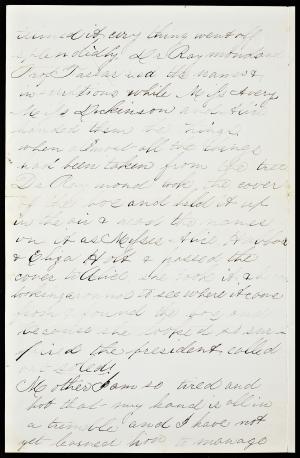 every thing went off
splendidly Dr Raymond and
Prof read the names &
inscriptions while Miss Avery
Miss Dickinson and
handed them the things
when almost all the things
had been taken from the tree
Dr Raymond took the cover
of the box and held it up
in the air & read the names
on it as Misses
& Eliza Hoit & passed the
cover to she took it &
looking around to see where it came
from found the box and
because she looked so sur-
prised the president called
out
Mother I am so tired and
hot that my hand is all in
a tremble and I have not
yet learned how to manage